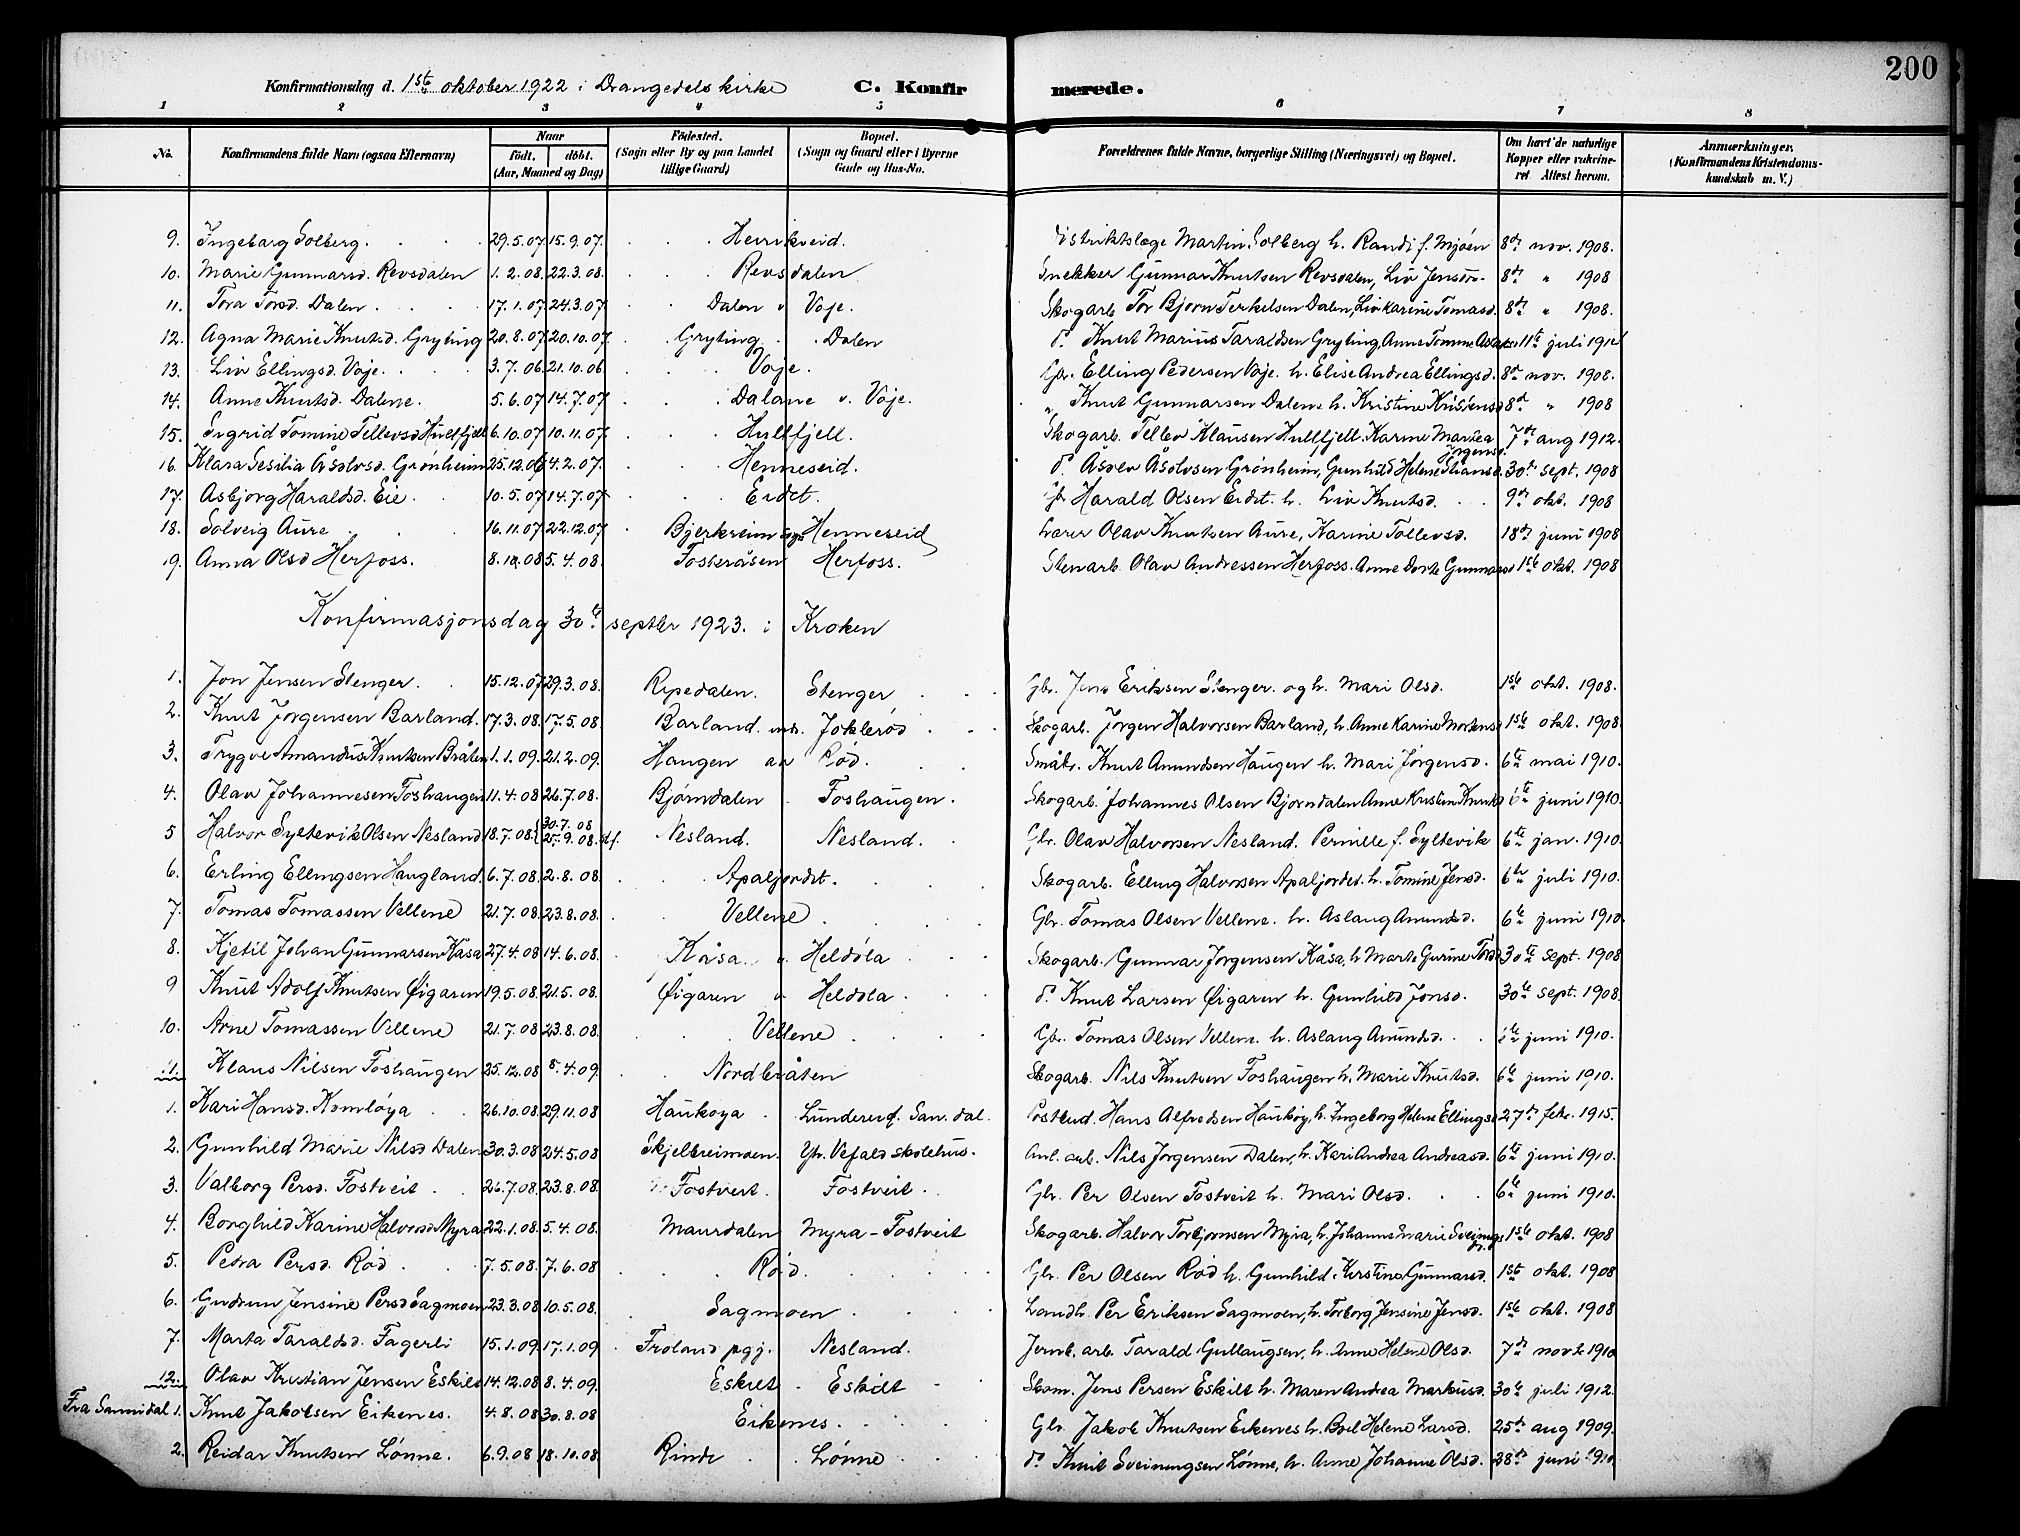 200
Konfirmationsdag d. 1ste oktober 1922 i Drangedels kirke C. Konfirmerede.
1 2 3 4 5 6 7 8
No. Konfirmandens fulde Navn (ogsaa Efternavn) Naar födt. döbt. (Aar, Maaned og Dag) Födested. (Sogn eller By og paa Landet tillige Gaard) Bopæl. (Sogn og Gaard eller i Byerne Gade og Hus-No. Forældrenes fulde Navne, borgerlige Stilling (Næringsvei) og Bopæl. Om havt de naturlige Kopper eller vakcineret Attest herom. Anmærkninger. (Konfirmandens Kristendomskundskab m. V.)
9. Ingebarg Solberg. 29.5.07 15.9.07. Henrikveid. Distriktslæge Martin Solberg h. Randi f. Mjøen 8de nov. 1908.
10. Marie Gunnarsd. Revsdalen 1.2.08. 22.3.08. Revsdalen Snekker Gunnar Knutsen Revsdalen, Liv Jensdr. 8de " 1908
11. Tora Torsd. Dalen 17.1.07 24.3.07 Dalen u Voje. Skogarb. Tor Bjørn Terkelsen Dalen, Liv Karine Tomasd. 8de " 1908.
12. Agna Marie Knutsd. Gryting 20.8.07 20.10.07. Gryting Dalen d. Knut Marius Taraldsen Gryting, Anne Tomine 11te juli 1912
13. Liv Ellingsd. Voje. 3.7.06 21.10.06. Voje. Gbr. Elling Pedersen Voje. h. Elise Andrea Ellingsd. 8de nov. 1908.
14. Anne Knutsd. Dalene. 5.6.07 14.7.07 Dalane u. Voje. " Knut Gunnarsen Dalene h. Kristine Kristensd 8de " 1908
15. Sigrid Tomine Tellevsd Hulfjell 6.10.07 10.11.07. Hulfjell. Skogarb. Tellev Klausen Hulfjell. Karine Mar­tea Jørgensd. 7de aug 1912.
16. Klara Sesilia Åsolvsd. Grønheim 25.12.06 4.2.07. Henneseid. d. Åsver Åsolvsen Grønheim, Gunhild Helene 30te sept. 1908
17. Asbjorg Haraldsd. Eie 10.5.07 14.7.07 Eidet. Gb Harald Olsen Eidet. h. Liv Knutsd. 9de okt. 1908
18. Solveig Aure 16.11.07 22.12.07 Bjerkreim sogn Henneseid Lærer Olav Knutsen Aure, Karine Tollevsd. 18de juni 1908
19. Anna Olsd Herfoss. 8.1.08 5.4.08. Fosteråsen Herfoss. Stenarb. Olav Andressen Herfoss. Anne Dorte Gunnarsd 1ste okt. 1908
Konfirmasjonsdag 30te septbr 1923. i Kroken
1. Jon Jensen Stenger. 15.12.07 29.3.08. Ripedalen. Stenger Gbr. Jens Eriksen Stenger. og h. Mari Olsd. 1ste okt. 1908.
2. Knut Jørgensen Barland. 17.3.08. 17.5.08 Barland. und. Joklerød Skogarb. Jørgen Halvorsen Barland, h. Anne Karine Mortensd 1ste okt. 1908
3. Trygve Amandus Knutsen Bråten 1.1.09. 21.2.09. Haugen av Rød. Småbr. Knut Amundsen Haugen h. Mari Jørgensd. 6te mai 1910.
4. Olav Johannesen Foshaugen 11.4.08 26.7.08. Bjørndalen Foshaugen. Skogarb. Johannes Olsen Bjørndalen Anne Kristin Knutsd 6te juni 1910.
5 Halvor Syltevik Olsen Nesland 18.7.08 30.7.08 25.9.08. stf. Nesland. Nesland. Gbr. Olav Halvorsen Nesland. Pernille f. Syltevik 6te jan. 1910.
6. Erling Ellingsen Haugland. 6.7.08 2.8.08. Apaljordet. Skogarb. Elling Halvorsen Apaljordet. h. Tomine Jensd. 6te juli 1910.
7. Tomas Tomassen Vellene 21.7.08 23.8.08. Vellene. Gbr. Tomas Olsen Vellene. h. Aslaug Amundsd. 6te juni 1910.
8. Kjetil Johan Gunnarsen Kåsa 27.4.08 14.6.08. Kåsa u Heldøla Skogarb. Gunnar Jørgensen Kåsa, h Marte Gurine Torsd 30te sept. 1908
9 Knut Adolf Knutsen Øigaren 19.5.08. 21.5.08. Øigaren u Heldøla d. Knut Larsen Øigaren h. Gunhild Jonsd. 30te sept. 1908.
10. Arne Tomassen Vellene 21.7.08 23.8.08. Vellene Gbr. Tomas Olsen Vellene h. Aslaug Amundsd. 6te juni 1910.
11. Klaus Nilsen Foshaugen 25.12.08 8.4.09. Nordbråten Skogarb. Nils Knutsen Foshaugen h. Marie Knutsd. 6te juni 1910.
1. Kari Hansd. Komløya 26.10.08 29.11.08 Haukøya Lunderud. San.dal. Postbud. Hans Alfredsen Haukøy, h. Ingeborg Helene Ellingsd 27de febr. 1915.
2. Gunhild Marie Nilsd Dalen 30.3.08 24.5.08 Skjelbreimoen. Yt. Vefald skolehus. Anl. arb. Nils Jørgensen Dalen, h. Kari Andrea Andreasd. 6te juni 1910.
3. Valborg Persd. Fostveit 26.7.08. 23.8.08. Fostveit. Fostveit. Gbr. Per Olsen Fostveit h. Mari Olsd. 6te juni 1910.
4. Borghild Karine Halvorsd Myra 22.1.08. 5.4.08. Maurdalen Myra - Fostveit Skogarb. Halvor Torbjornsen Myra, h. Johanne Marie Sveinungsdr. 1ste okt. 1908
5. Petra Persd. Rød 7.5.08. 7.6.08 Rød. Gbr. Per Olsen Rød h. Gunhild Kirstine Gunnarsd. 1ste okt. 1908
6. Gudrun Jensine Persd Sagmoen 23.3.08 10.5.08. Sagmoen Landh. Per Eriksen Sagmoen, h. Torborg Jensine Jensd. 1ste okt. 1908
7. Marta Taraldsd. Fagerli 15.1.09. 17.1.09. Froland pgj. Nesland. Jernb. arb. Tarald Gullaugsen, h. Anne Helene Olsd. 7de novb 1910
12. Olav Kristian Jensen Eskilt 14.12.08 8.4.09. Eskilt Eskilt Skom. Jens Persen Eskilt h. Maren Andrea Markusd. 30te juli 1912.
Fra Sannidal 1. Knut Jakobsen Eikenes. 4.8.08 30.8.08 Eikenes. Gbr. Jakob Knutsen Eikenes h. Boel Helene Larsd. 25de aug 1909.
2. Reidar Knutsen Lønne. 6.9.08 18.10.08. Rinde Lønne d. Knut Sveinungsen Lønne, h. Anne Johanne Olsd. 28de juni 1910